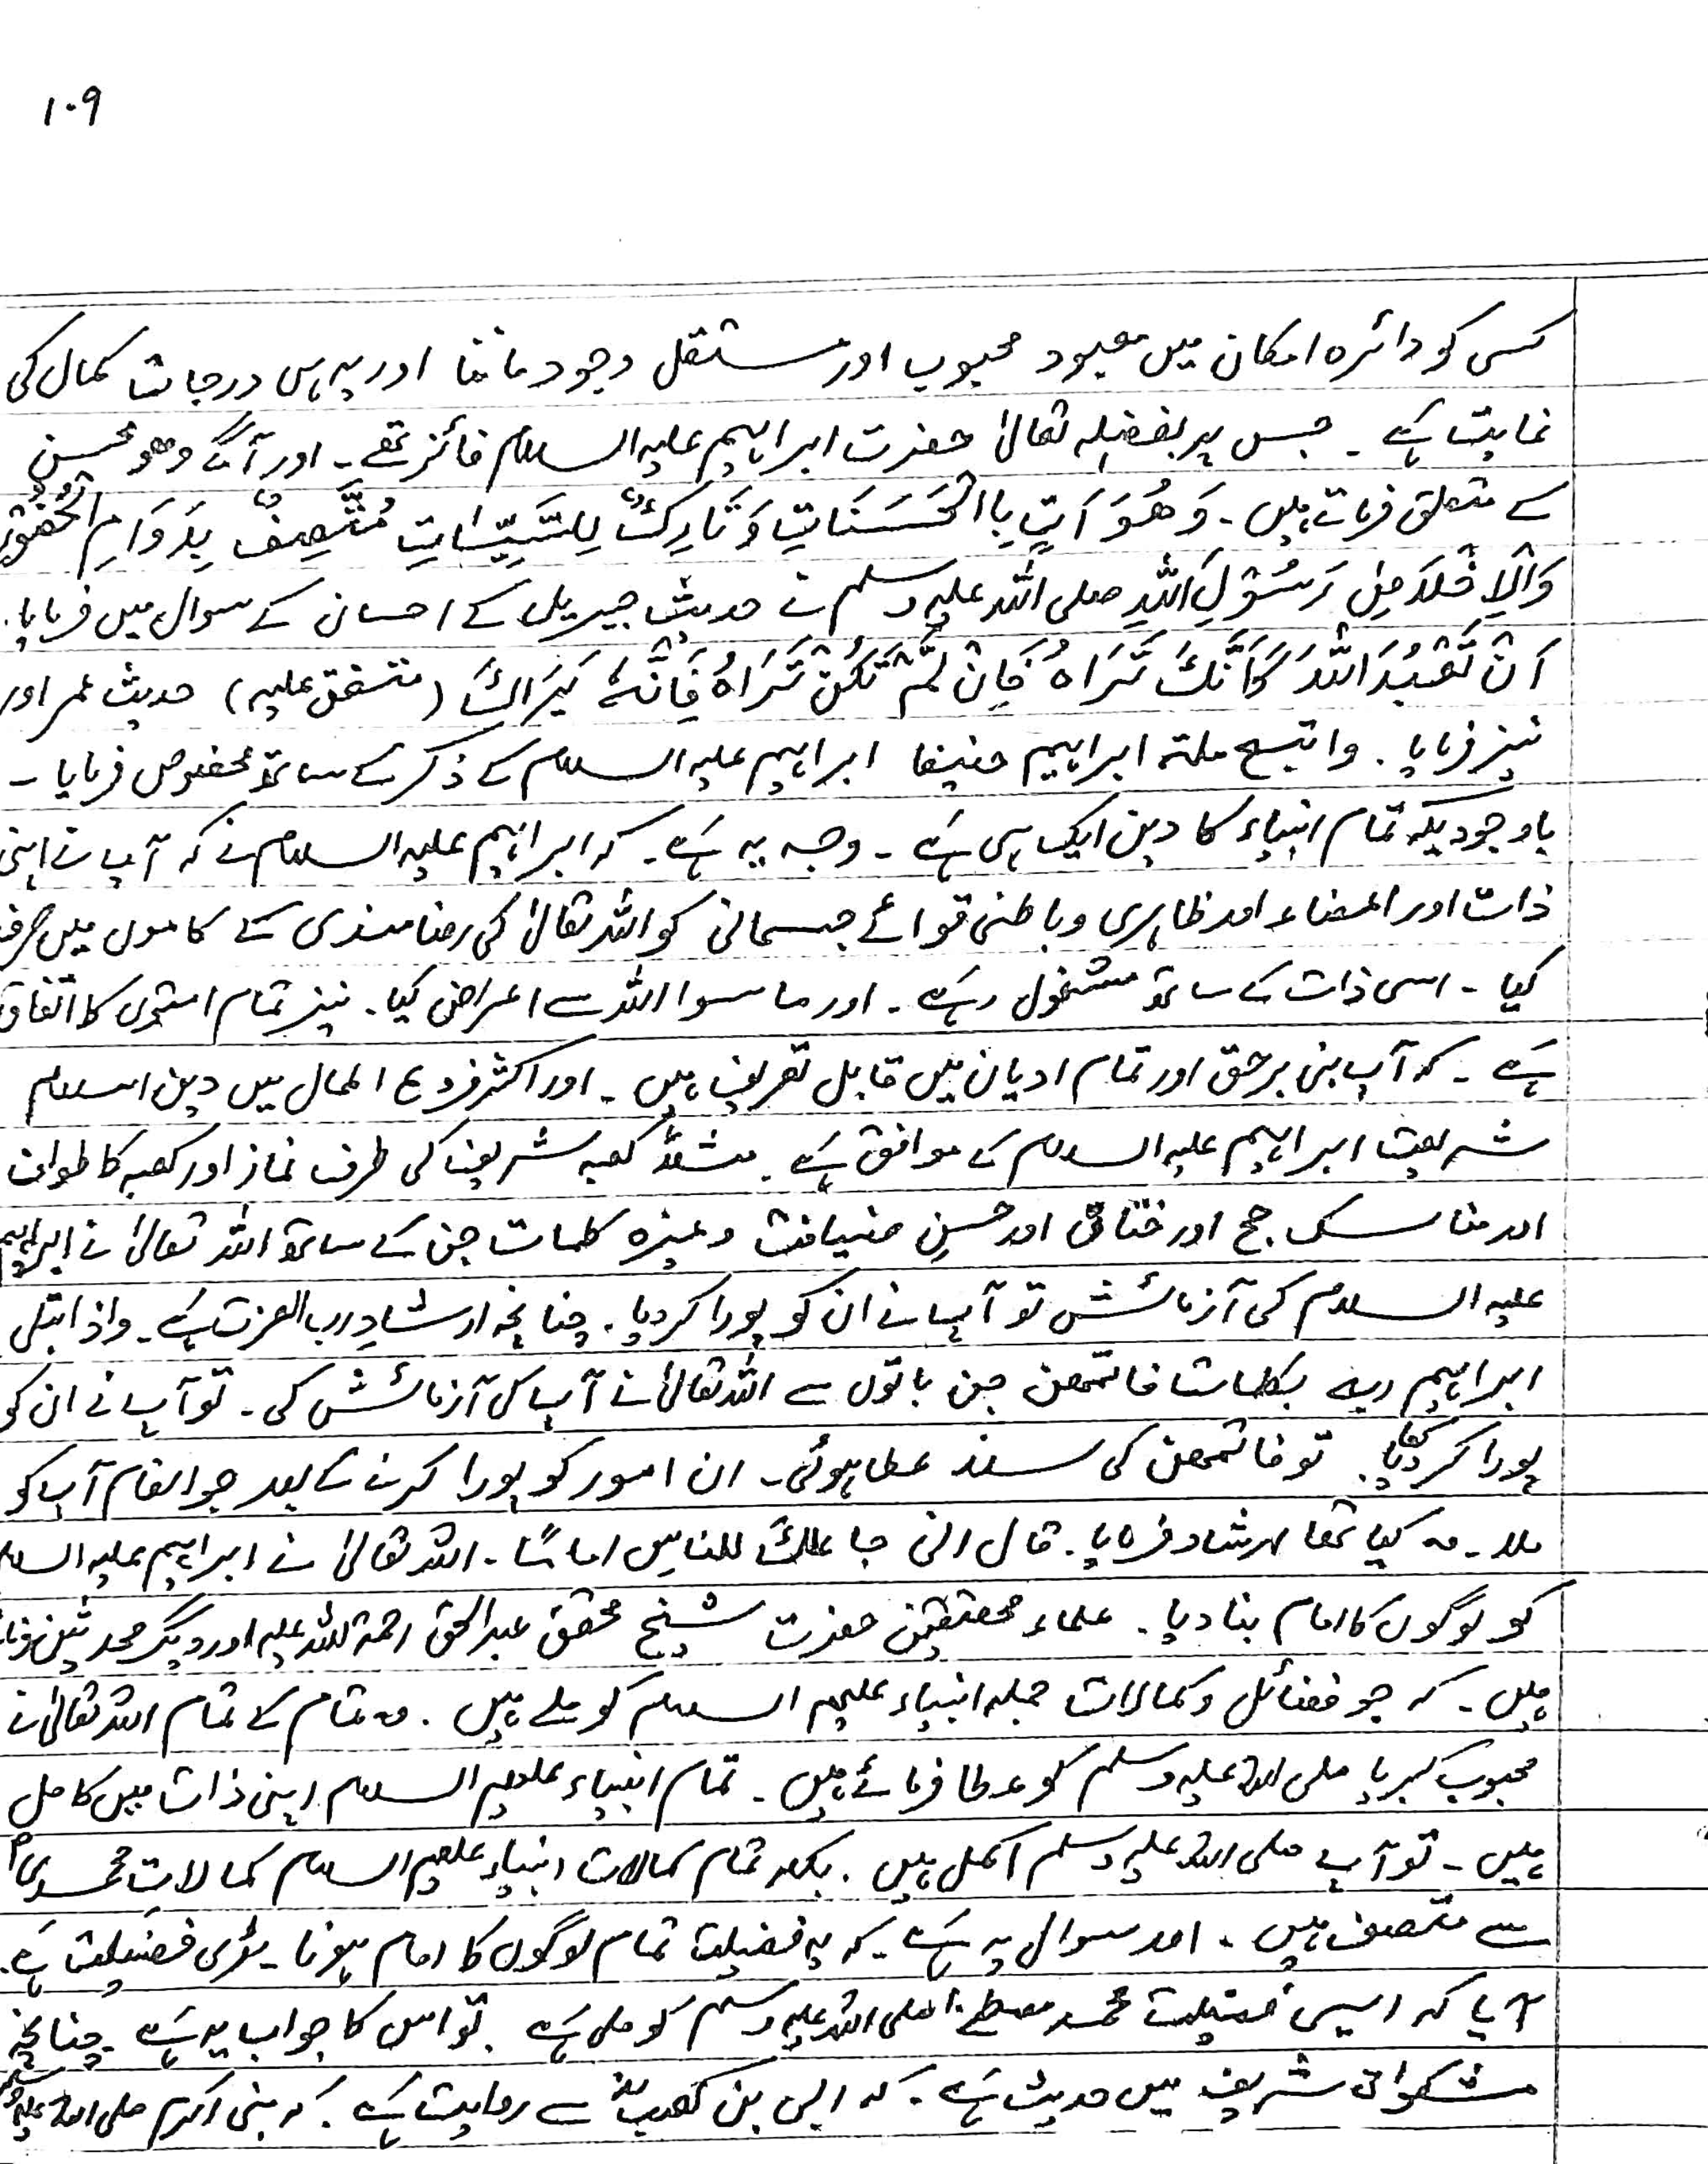 ۱۰۹
کسی کو دائرہ امکان میں معبود محبوب اور مستقل وجود ماننا اور یہ ہی درجات کمال کی
غایت ہے۔ جس پر بفضلہ تعالیٰ حضرت ابراہیم علیہ السلام فائز تھے۔ اور آگے وھو محسن
کے متعلق فرماتے ہیں۔ وَھُوَ اٰتٍ بِا الْحَسَنَاتِ وَ تَارِكٌ لِلسَّیِّئَاتِ مُتَّصِفٌ بِدَوَامِ الْحُضُوْرِ
رَسُوْلِ اللّٰہِ صلی اللہ علیہ وسلم نے حدیث جبریل کے احسان کے سوال میں فرمایا۔
اَنْ تَعْبُدَ اللّٰہَ کَاَنَّكَ تَرَاہُ فَاِنْ لَّمْ تَکُنْ تَرَاہُ فَاِنَّہٗ یَرَاكَ (متفق علیہ) حدیث عمر اور
نیز فرمایا۔ واتبع ملتہ ابراہیم حنیفا ابراہیم علیہ السلام کے ذکر کے ساتھ مخصوص فرمایا۔
باوجودیکہ تمام انبیاء کا دین ایک ہی ہے۔ وجہ یہ ہے۔ کہ ابراہیم علیہ السلام نے کہ آپ نے اپنی
ذات اور اعضاء اور ظاہری و باطنی قوائے جسمانی کو اللہ تعالیٰ کی رضامندی کے کاموں میں صرف
کیا۔ اسی ذات کے ساتھ مشغول رہے۔ اور ما سوا اللہ سے اعراض کیا۔ نیز تمام امتوں کا اتفاق
ہے۔ کہ آپ نبی برحق اور تمام ادیان میں قابل تعریف ہیں۔ اور اکثر فروع اعمال میں دین اسلام
شریعت ابراہیم علیہ السلام کے موافق ہے۔ مثلاً کعبہ شریف کی طرف نماز اور کعبہ کا طواف
اور مناسک حج اور ختنا اور حسنِ ضیافت وغیرہ کلمات جن کے ساتھ اللہ تعالیٰ نے ابراہیم
علیہ السلام کی آزمائش تو آپ نے ان کو پورا کردیا۔ چنانچہ ارشادِ رب العزت ہے۔ واذ ابتلی
ابراہیم ربہ بکلمات فاتمھن جن باتوں سے اللہ تعالیٰ نے آپ کی آزمائش کی۔ تو آپ نے ان کو
پورا کر دکھایا۔ تو فاتمھن کی سند عطا ہوئی۔ ان امور کو پورا کرنے کے بعد جو انعام آپ کو
ملا۔ وہ کیا تھا ارشاد فرمایا۔ قال انی جاعلك للناسِ اماماً۔ اللہ تعالیٰ نے ابراہیم علیہ السلام
کو لوگوں کا امام بنا دیا۔ علماء محققین حضرت شیخ محقق عبدالحق رحمۃ اللہ علیہ اور دیگر محدثین فرماتے
ہیں۔ کہ جو فضائل و کمالات جملہ انبیاء علیہم السلام کو ملے ہیں۔ وہ تمام کے تمام اللہ تعالیٰ نے
محبوب کبریا صلی اللہ علیہ وسلم کو عطا فرمائے ہیں۔ تمام انبیاء علیہم السلام اپنی ذات میں کامل
ہیں۔ تو آپ صلی اللہ علیہ وسلم اکمل ہیں۔ بلکہ تمام کمالات انبیاء علیھم السلام کمالاتِ محمدی
سے متصف ہیں۔ اور سوال یہ ہے۔ کہ یہ فضیلت تمام لوگوں کا امام ہونا۔ بڑی فضیلت ہے۔
آیا کہ ایسی فضیلت محمد مصطفےٰ صلی اللہ علیہ وسلم کو ملی ہے۔ تو اس کا جواب یہ ہے۔ چنانچہ
مشکواۃ شریف میں حدیث ہے۔ کہ ابی بن کعب سے روایت ہے۔ کہ نبی اکرم صلی اللہ علیہ وسلم